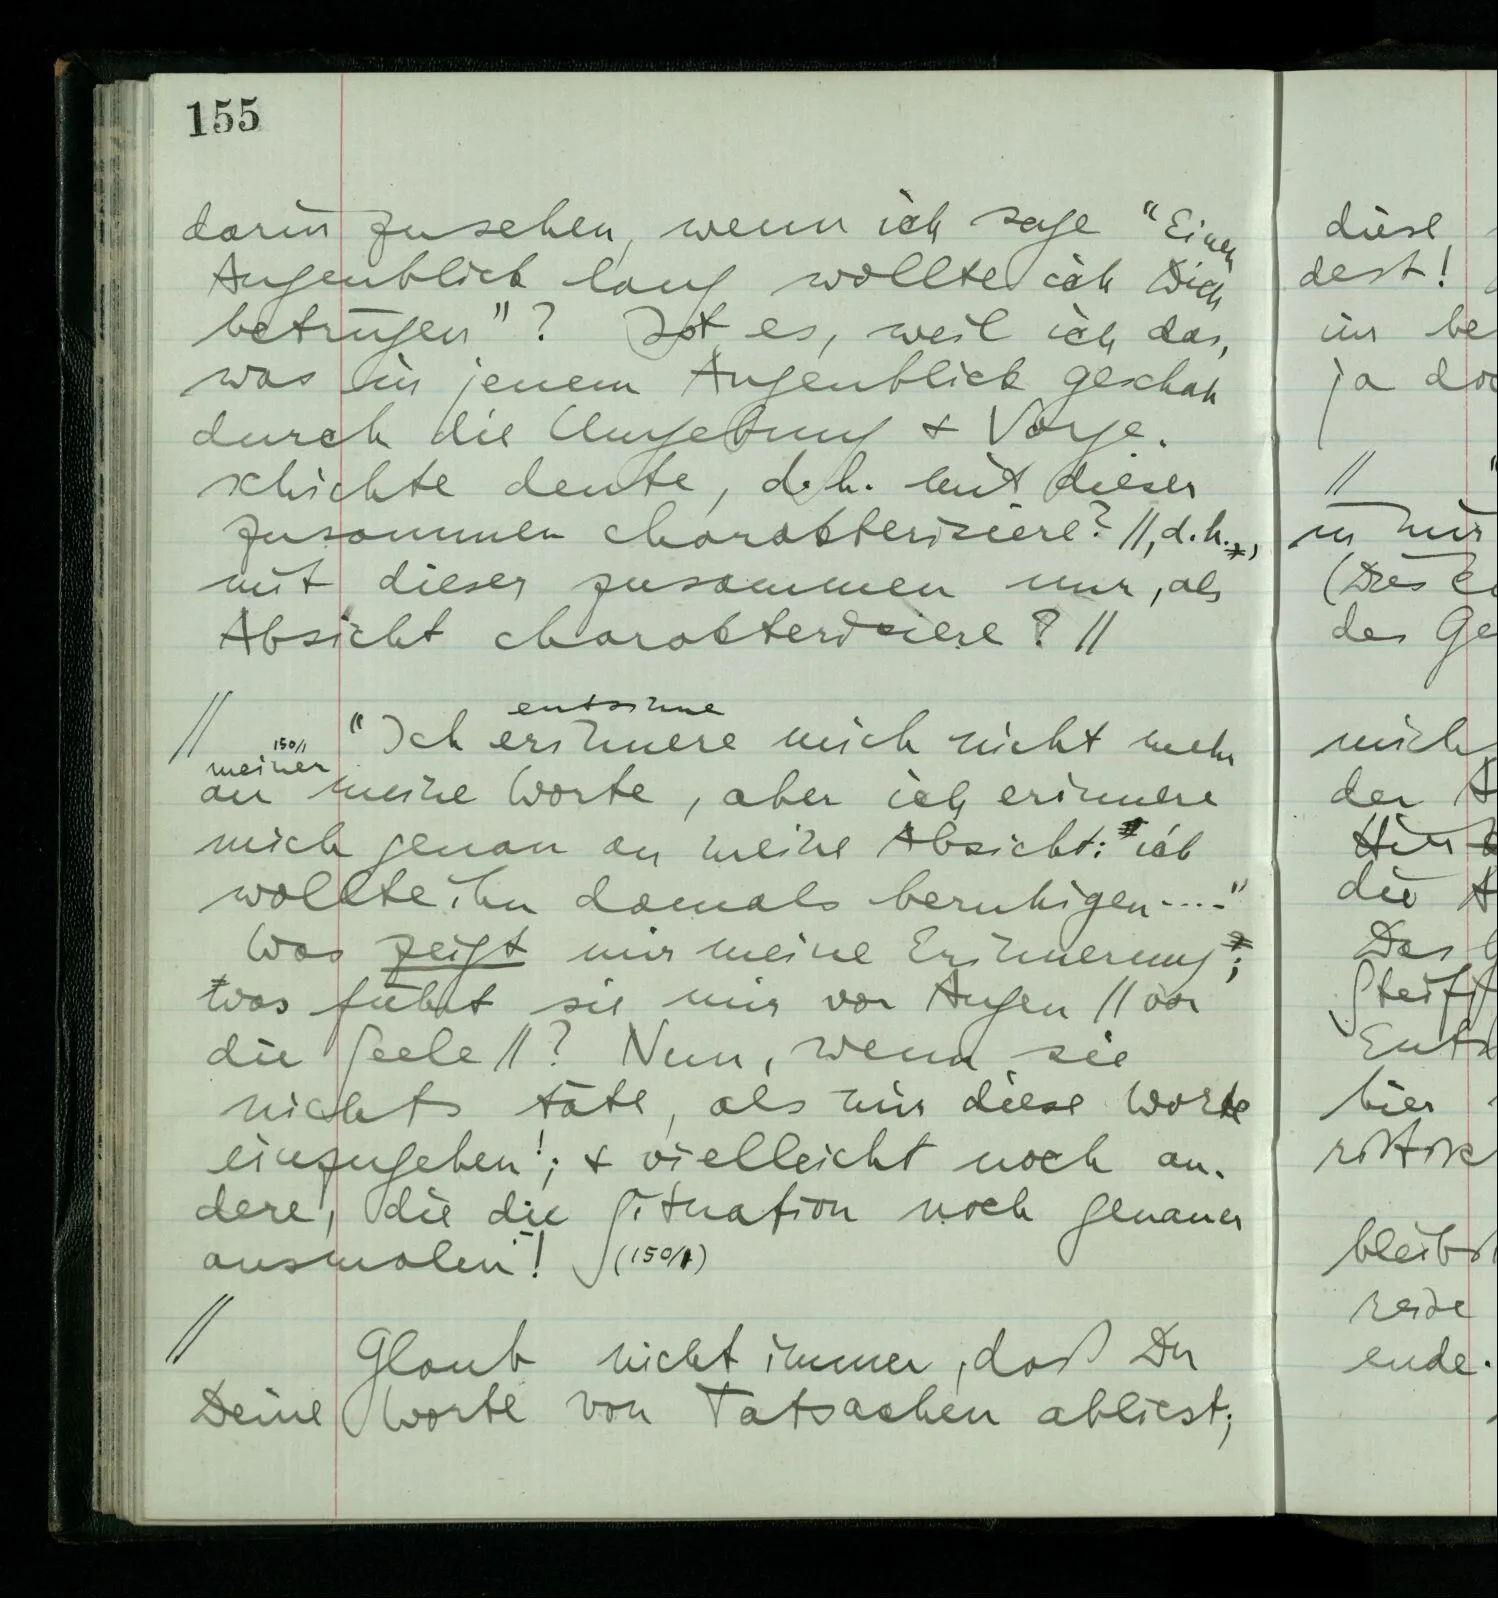 155
darin zu sehen, wenn ich sage "Einen
Augenblick lang wollte ich Dich
betrügen"? Ist es, weil ich das,
was in jenem Augenblick geschah
durch die Umgebung & Vorge-
schichte deute, d.h. mit dieser
zusammen charakterisiere? //, d.h.,
mit dieser zusammen nur, als
Absicht charakterisiere? //
// "Ich erinnere mich nicht mehr
entsinne
150/1
meiner
an meine Worte, aber ich erinnere
mich genau an meine Absicht: ich
wollte ihn damals beruhigen...."
Was zeigt mir meine Erinnerung;
was führt sie mir vor Augen // vor
die Seele //? Nun, wenn sie
nichts täte, als mir diese Worte
einzugeben!; & vielleicht noch an-
dere, die die Situation noch genauer
ausmalen! (150/1)
// Glaub nicht immer, daß Du
Deine Worte von Tatsachen abliest;
diese
dest!
im be
ja do
//
in mir
(Dies
des Ge
mich
der A
die A
Das
Ents
hier
bleib
rede
ende.